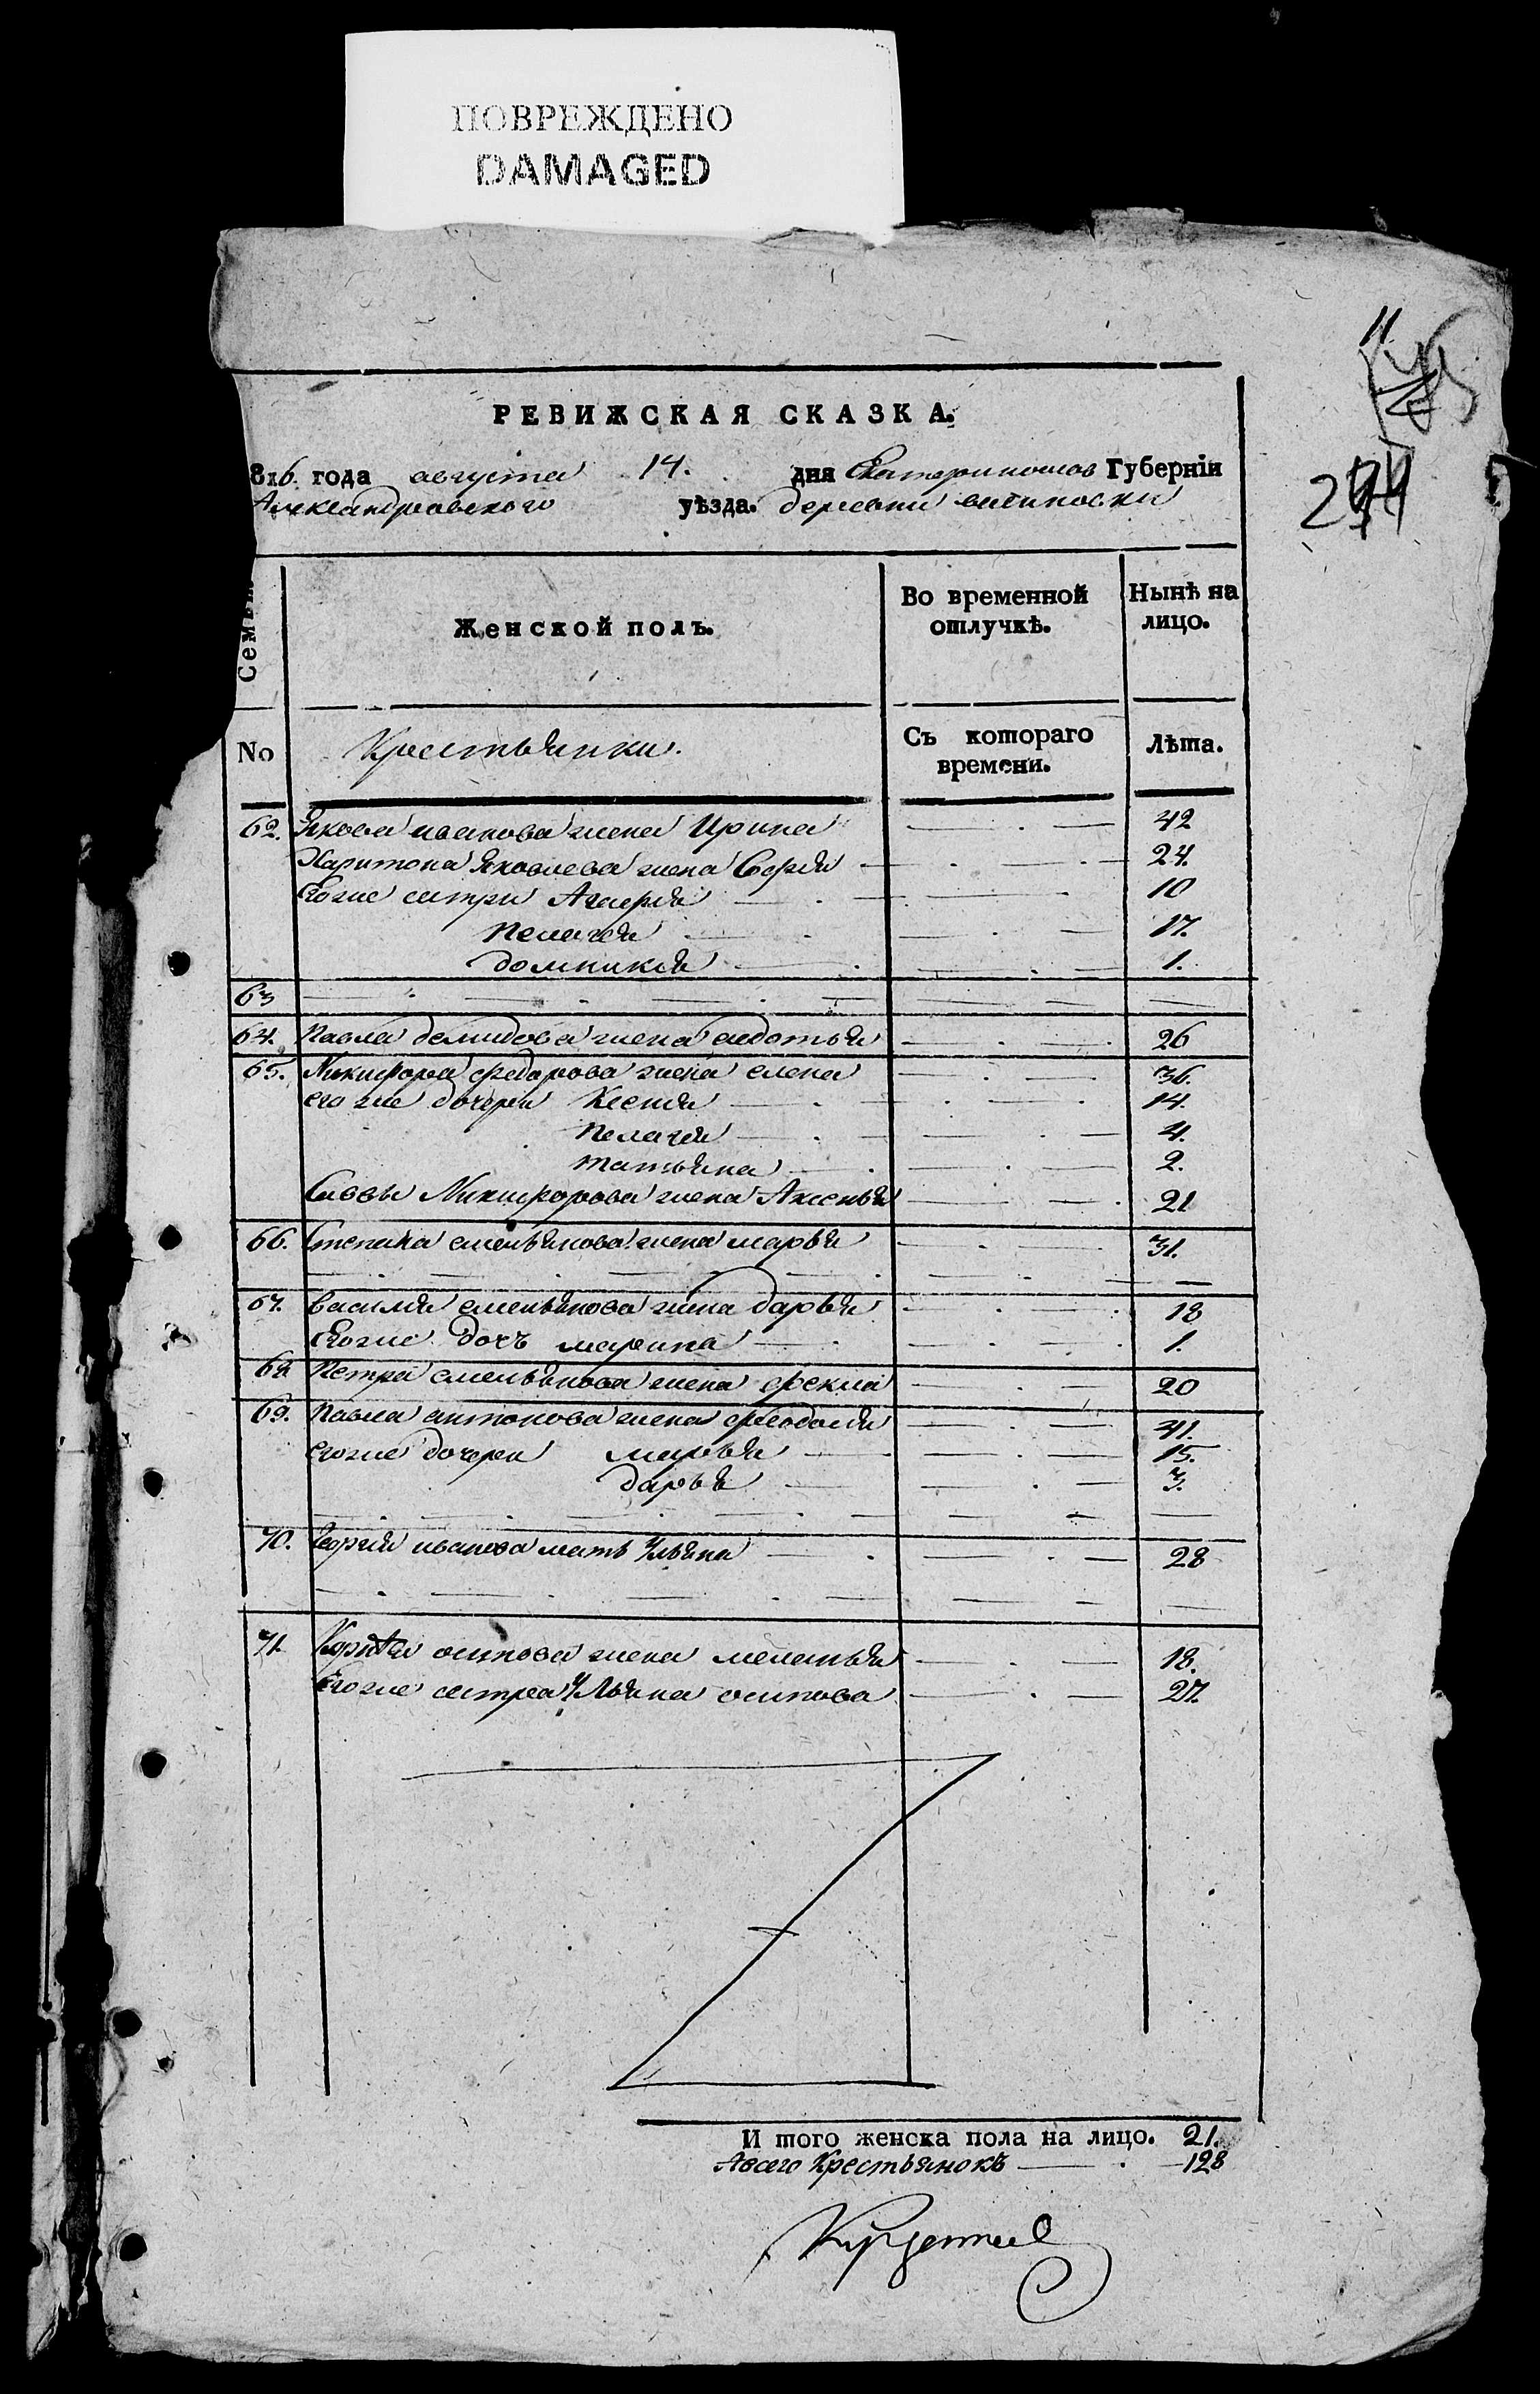 ПОВРЕЖДЕНО
DAMAGED
11.
РЕВИЖСКАЯ СКАЗКА.
816. года августа 14. дня Екатеринослов Губерніи
Александровского уѣзда. деревни
Семьи
Женской полъ.
Во временной отлучкѣ.
Нынѣ на лицо.
No
Крестьянки.
Съ котораго времени.
Лѣта.
62. Якова иванова жена Ирина 42
Харитона Яковлева жена Софія 24.
Егоже сестри 10
Пелагея 17.
домникія 1.
63
64. Павла демидова жена авдотья 26
65. Никифора федорова жена елена 36.
его же дочери Ксенія 14.
Пелагея 4.
татьяна 2.
Саввы Никифорова жена Аксенья 21
66. Степана емельянова жена марья 31.
67. василія емельянова жена дарья 18
Егоже дочь марина 1.
68 Петра емельянова жена фекла 20
69. Павла антонова жена феодосія 41.
егоже дочери марья 15.
дарья 3.
70. Георгия иванова мать Ульяна 28
71. осипова жена меланья 18.
Егоже сестра Ульяна осипова 27.
И того женска пола на лицо. 21.
Авсего Крестьянокъ 128